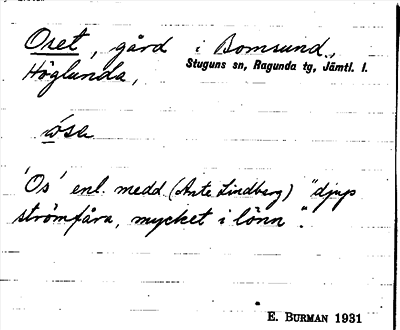 Oset, gård i Bomsund,
Stuguns sn, Ragunda tg, Jämtl. l.
Höglunda,
ò̱se
'Os' enl. medd. (Ante Lindberg) "djup
strömfåra, mycket i lönn".
E. BURMAN 1931